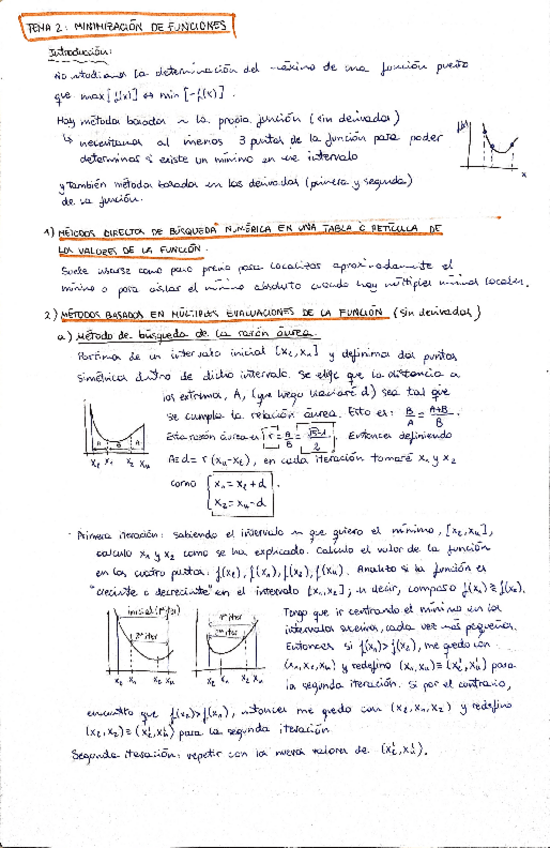 TEMA 2: MINIMIZACIÓN DE FUNCIONES
Introducción:
No estudiamos la determinación del máximo de una función puesto
que max[f(x)] ↔ min[-f(x)].
Hay métodos basados en la propia función (sin derivadas)
↳ necesitamos al menos 3 puntos de la función para poder
determinar si existe un mínimo en ese intervalo
f(x)
x
y también métodos basados en las derivadas (primera y segunda)
de la función.
1) MÉTODOS DIRECTOS DE BÚSQUEDA NUMÉRICA EN UNA TABLA O RETÍCULA DE
LOS VALORES DE LA FUNCIÓN.
Suele usarse como paso previo para localizar aproximadamente el
mínimo o para aislar el mínimo absoluto cuando hay múltiples mínimos locales.
2) MÉTODOS BASADOS EN MÚLTIPLES EVALUACIONES DE LA FUNCIÓN (sin derivadas)
a) Método de búsqueda de la razón áurea.
Partimos de un intervalo inicial [xℓ, xu] y definimos dos puntos
simétricos dentro de dicho intervalo. Se elige que la distancia a
los extremos, A, (que luego llamaré d) sea tal que
se cumpla la relación áurea. Esto es: B/A = (A+B)/B.
Esta razón áurea es r = A/B = (√5-1)/2. Entonces definiendo
A≡d = r(xu-xℓ), en cada iteración tomaré x1 y x2
como x1 = xℓ + d
x2 = xu - d
A B A
xℓ x1 x2 xu
· Primera iteración: sabiendo el intervalo en que quiero el mínimo, [xℓ, xu],
calculo x1 y x2 como se ha explicado. Calculo el valor de la función
en los cuatro puntos: f(xℓ), f(x1), f(x2), f(xu). Analizo si la función es
"creciente o decreciente" en el intervalo [x1, x2]; es decir, comparo f(x1) ≷ f(x2).
1ª iter
2ª iter
xℓ x1 x2 xu
1ª iter
2ª iter
xℓ x1 x2 xu
Tengo que ir centrando el mínimo en los
intervalos sucesivos, cada vez más pequeños.
Entonces si f(x1)>f(x2), me quedo con
(x1, x2, xu) y redefino (x1, xu)≡(xℓ', xu') para
la segunda iteración. Si por el contrario,
encuentro que f(x2)>f(x1), entonces me quedo con (xℓ, x1, x2) y redefino
(xℓ, x2)≡(xℓ', xu') para la segunda iteración
Segunda iteración: repetir con los nuevos valores de (xℓ', xu').